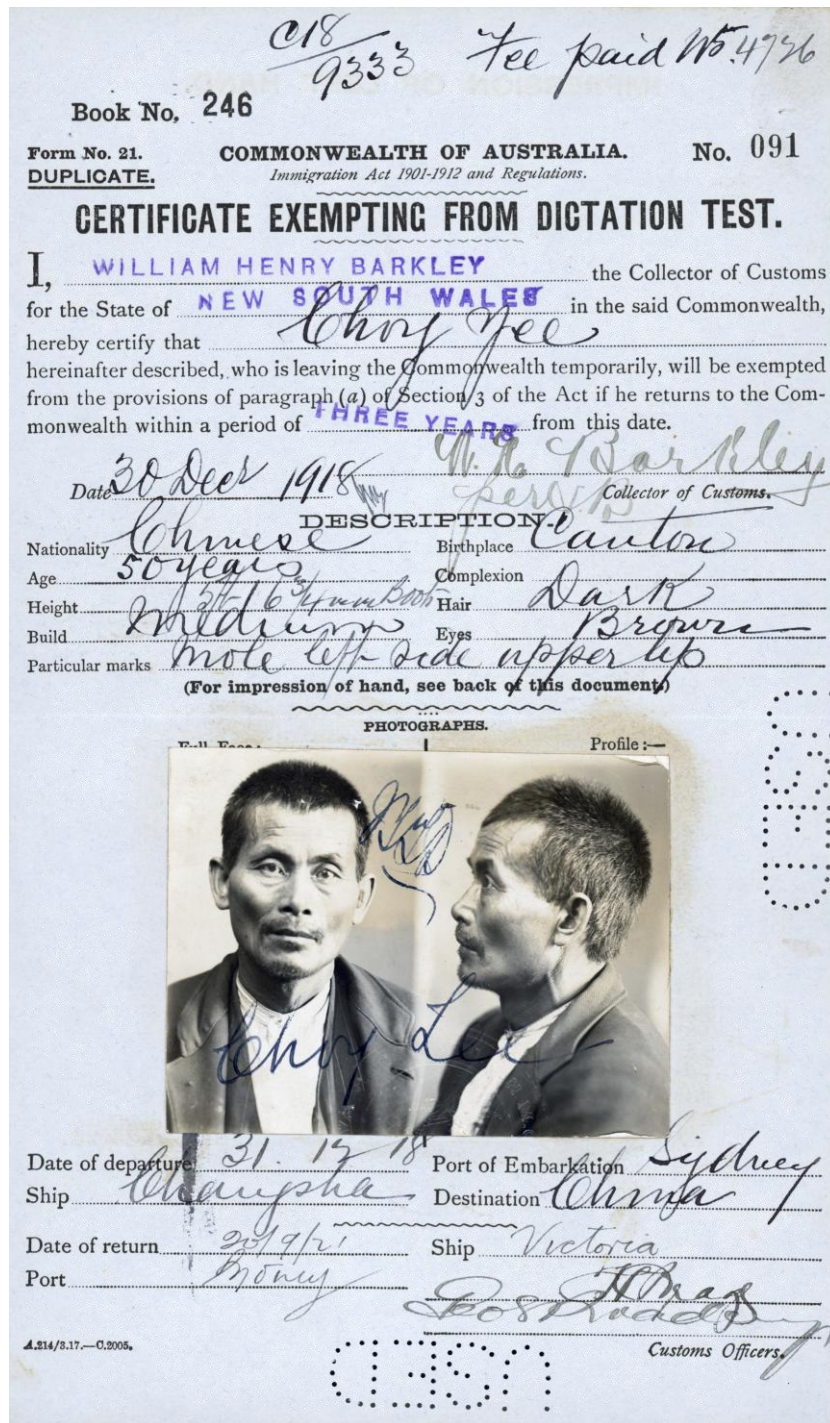 C18/9333 Fee paid No. 4726
Book No. 246
Form No. 21. COMMONWEALTH OF AUSTRALIA. No. 091
DUPLICATE. Immigration Act 1901-1912 and Regulations.
CERTIFICATE EXEMPTING FROM DICTATION TEST.
I, WILLIAM HENRY BARKLEY the Collector of Customs
for the State of NEW SOUTH WALES in the said Commonwealth,
hereby certify that Choy Yee
hereinafter described, who is leaving the Commonwealth temporarily, will be exempted
from the provisions of paragraph (a) of Section 3 of the Act if he returns to the Com-
monwealth within a period of THREE YEARS from this date.
W. H. Barkley
Date 30 Decr 1918 Collector of Customs.
DESCRIPTION.
Nationality Chinese Birthplace Canton
Age 50 years Complexion
Height 5ft 6 3/4 in Boots Hair Dark
Build Medium Eyes Brown
Particular marks Mole left side upper lip
(For impression of hand, see back of this document.)
PHOTOGRAPHS.
Full Face:— Profile:—
Choy Lee
USED
Date of departure 31. 12. 18 Port of Embarkation Sydney
Ship Changsha Destination China
Date of return 20/9/21 Ship Victoria
Port Sydney
A.214/3.17.—C.2005. Customs Officers.
USED